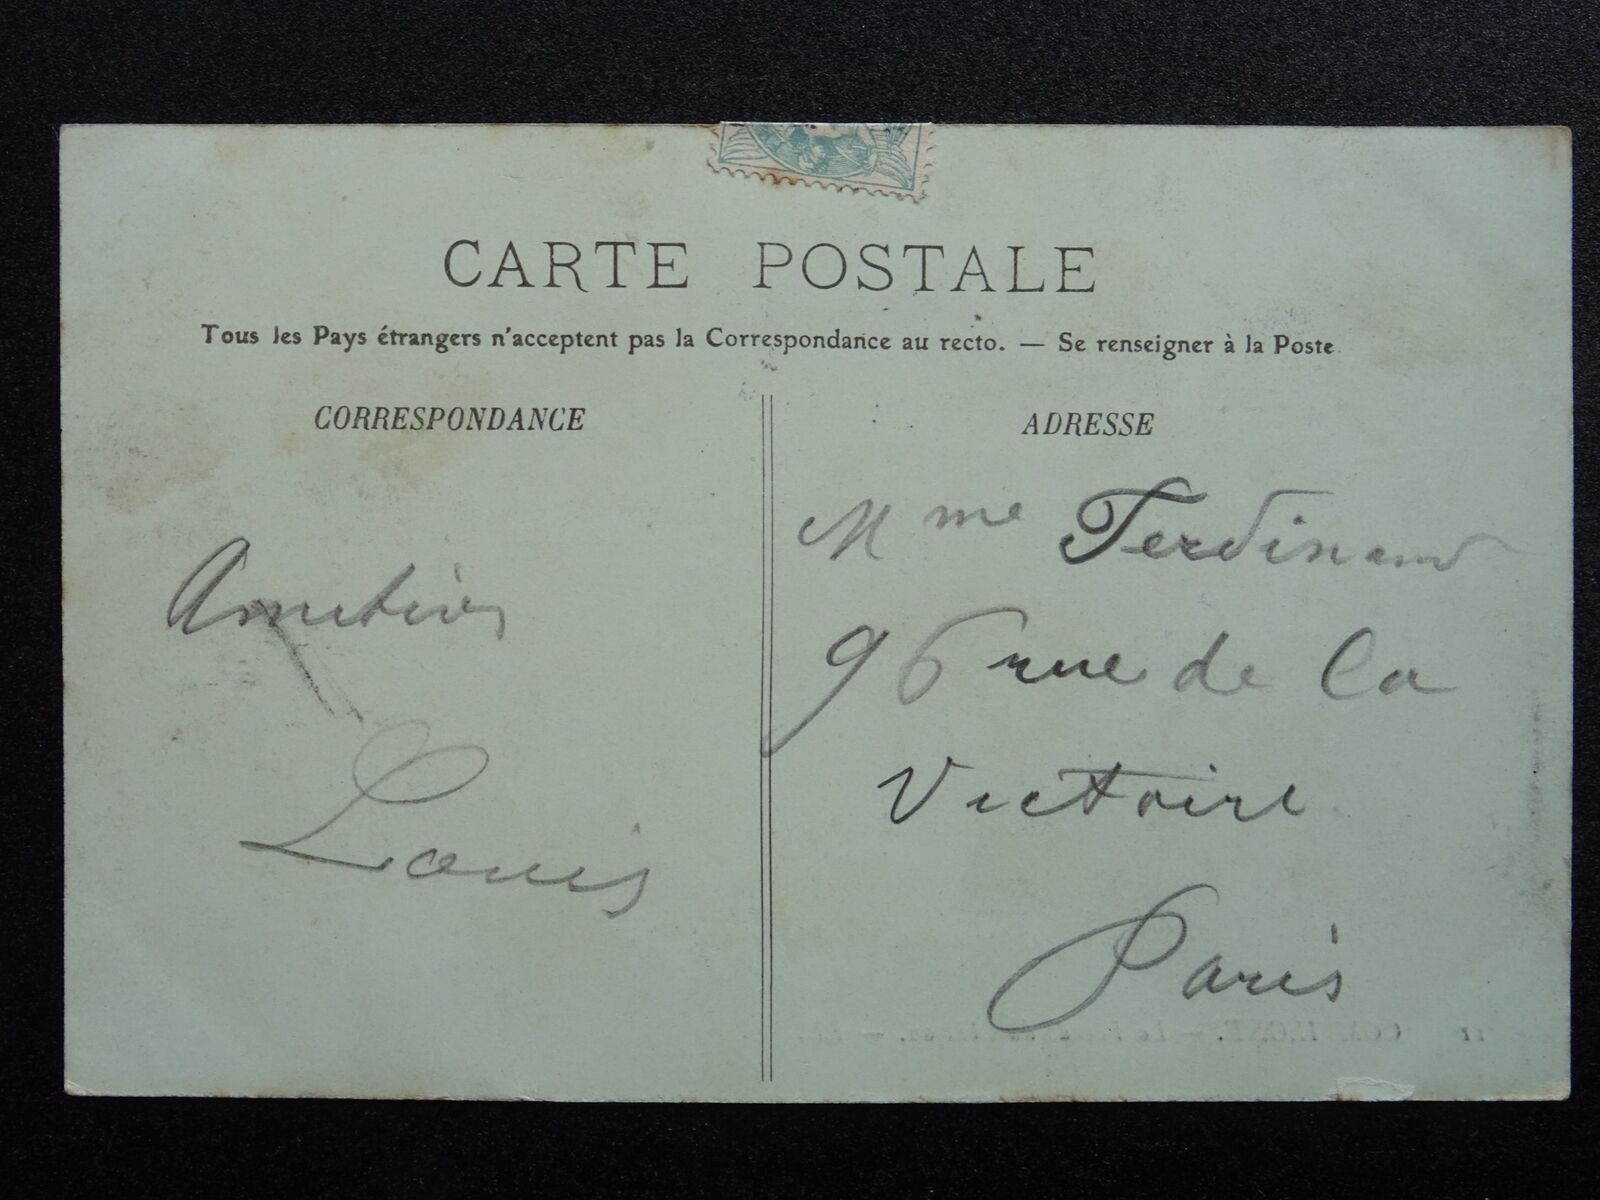 CARTE POSTALE
Tous les Pays étrangers n'acceptent pas la Correspondance au recto. — Se renseigner à la Poste
CORRESPONDANCE
Amitiés
Louis
ADRESSE
Mme Ferdinand
96 rue de la
Victoire
Paris